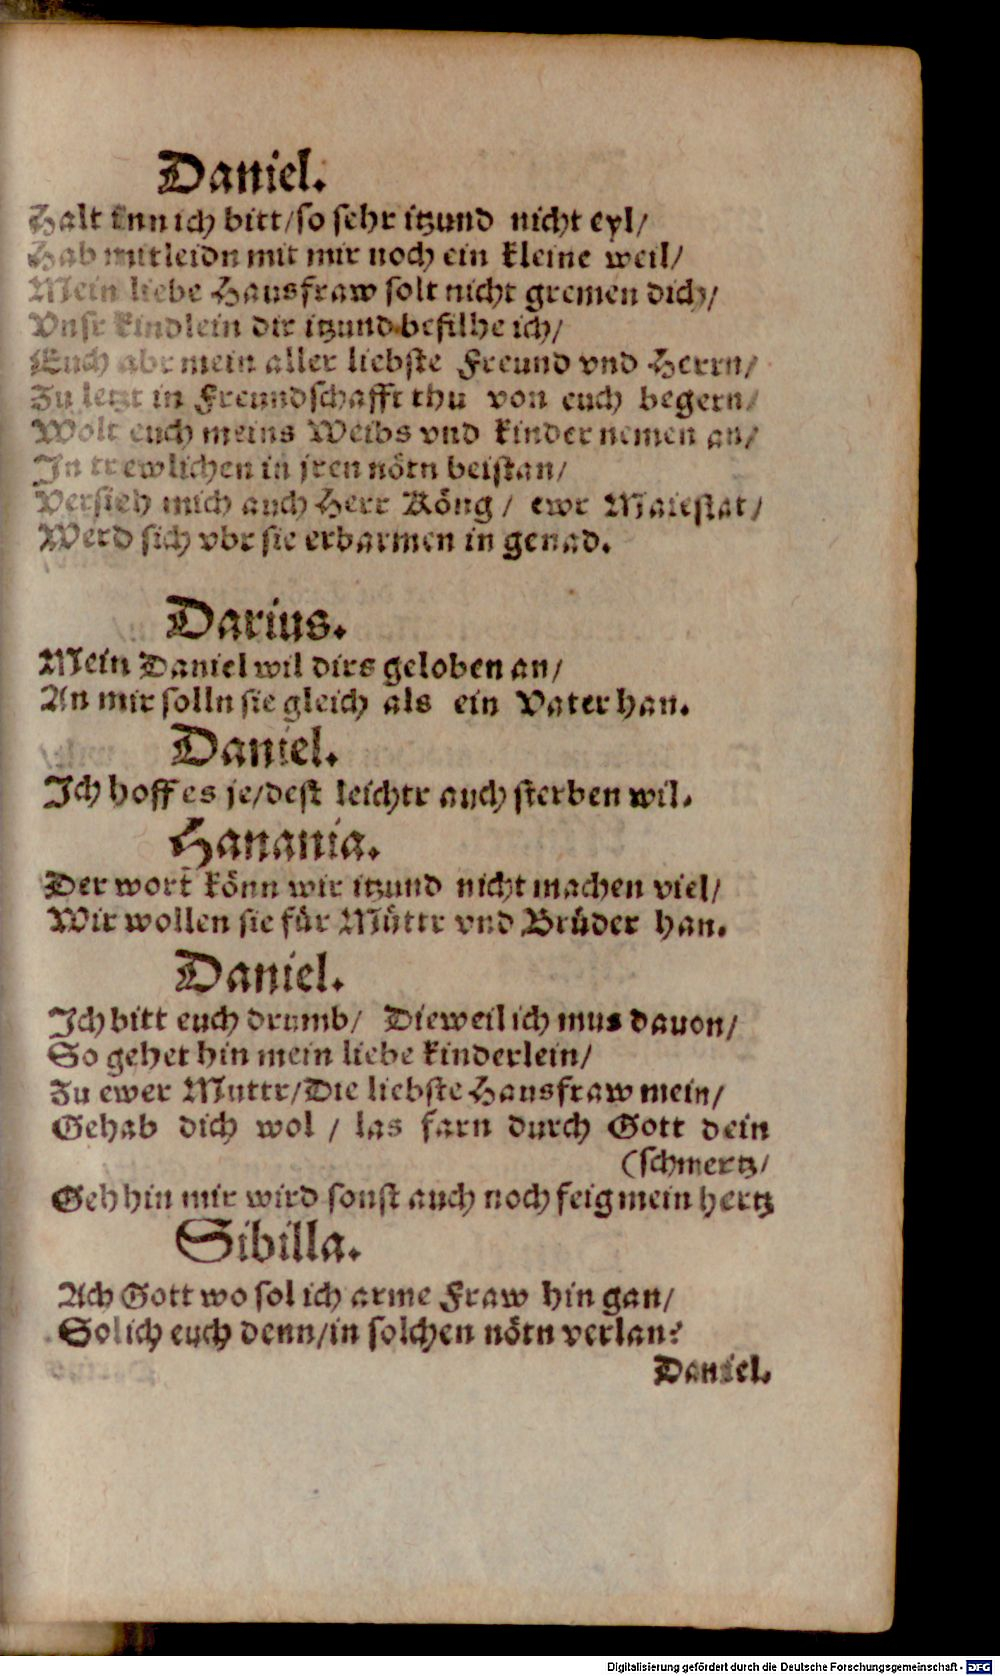 Daniel.
Halt inn ich bitt/so sehr itzund nicht eyl/
Hab mitleidn mit mir noch ein kleine weil/
Mein liebe Hausfraw solt nicht gremen dich/
Vnsr kindlein dir itzund befilhe ich/
Euch abr mein aller liebste Freund vnd Herrn/
Zu letzt in Freundschafft thu von euch begern/
Wolt euch meins Weibs vnd kinder nemen an/
In trewlichen in jren nötn beistan/
Versieh mich auch Herr Köng / ewr Maiestat/
Werd sich vbr sie erbarmen in genad.
Darius.
Mein Daniel wil dirs geloben an/
An mir solln sie gleich als ein Vater han.
Daniel.
Ich hoff es je/dest leichtr auch sterben wil.
Hanania.
Der wort könn wir itzund nicht machen viel/
Wir wollen sie für Müttr vnd Brüder han.
Daniel.
Ich bitt euch drumb/ Dieweil ich mus dauon/
So gehet hin mein liebe kinderlein/
Zu ewer Muttr/Die liebste Hausfraw mein/
Gehab dich wol / las farn durch Gott dein
(schmertz/
Geh hin mir wird sonst auch noch feig mein hertz
Sibilla.
Ach Gott wo sol ich arme Fraw hin gan/
Sol ich euch denn/in solchen nötn verlan?
Daniel.
Digitalisierung gefördert durch die Deutsche Forschungsgemeinschaft - DFG